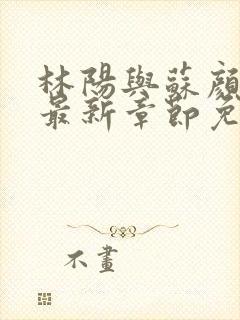 林陽與蘇顏
最新章節免
不畫